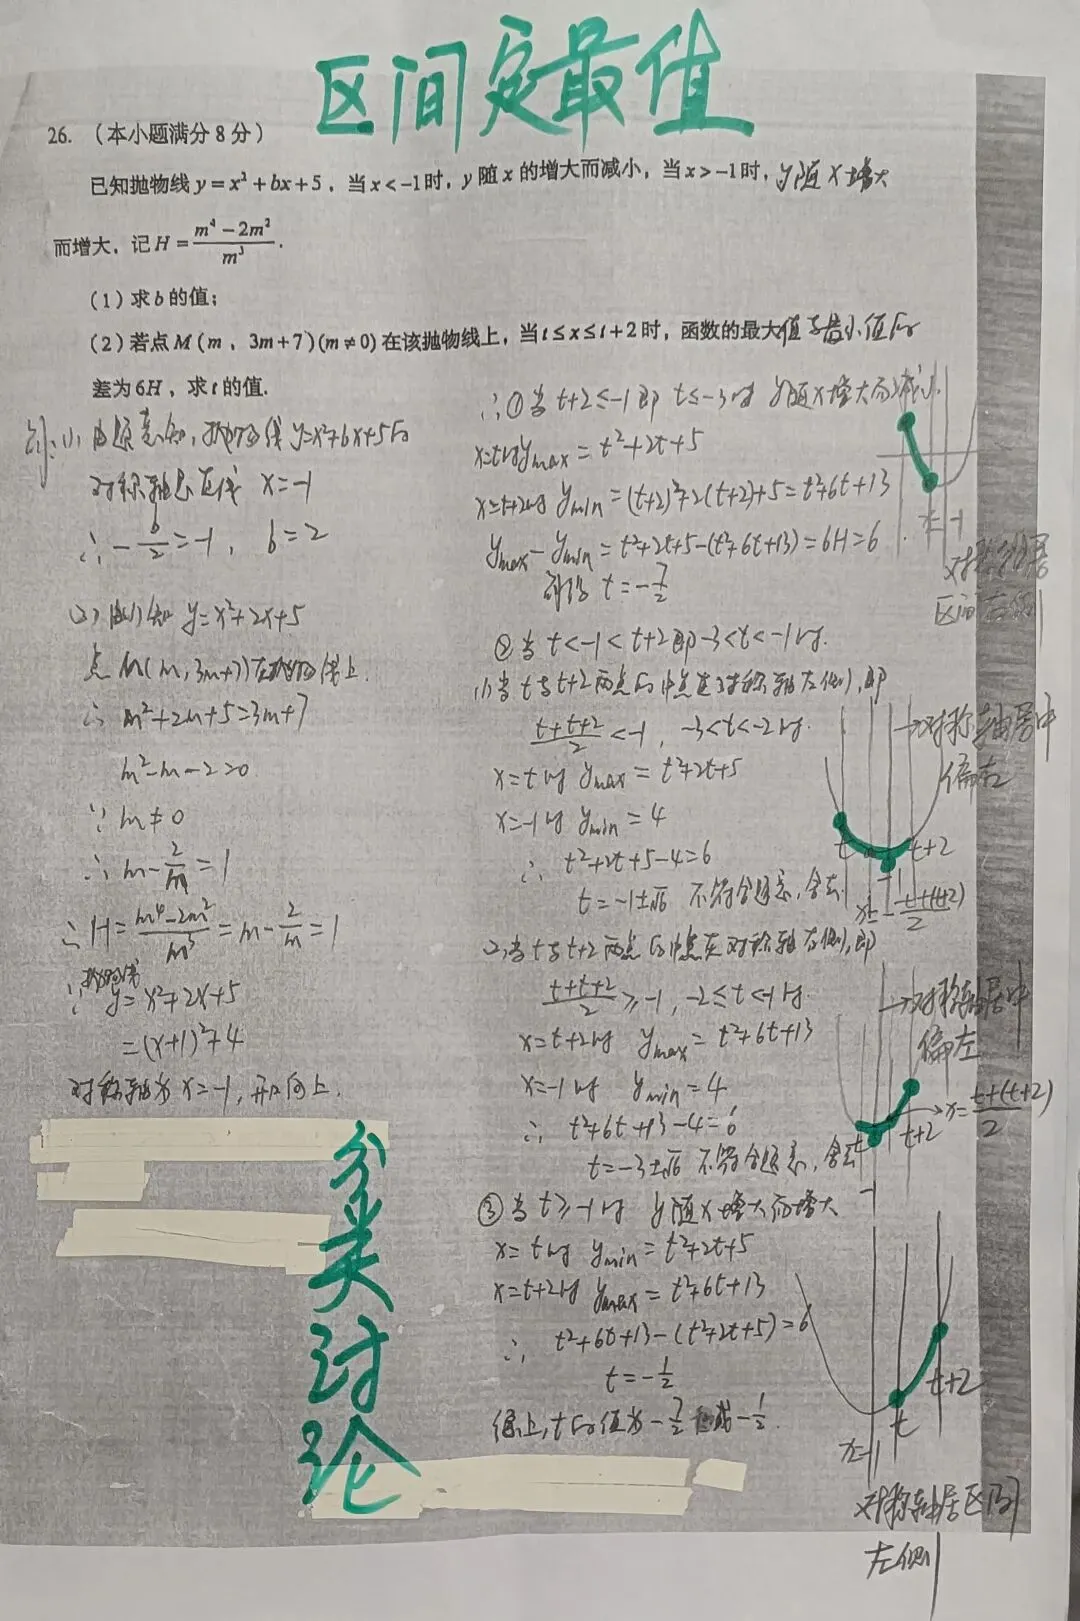 区间定最值
26.（本小题满分8分）
已知抛物线 y=x²+bx+5，当x<-1时，y随x的增大而减小，当x>-1时，y随x增大
而增大，记H=(m⁴-2m²)/m³.
(1)求b的值；
(2)若点M(m，3m+7)(m≠0)在该抛物线上，当t≤x≤t+2时，函数的最大值与最小值的
差为6H，求t的值.
解:(1)由题意知,抛物线y=x²+bx+5的
对称轴是直线 x=-1
∴-b/2=-1, b=2
(2)由(1)知 y=x²+2x+5
点M(m,3m+7)在抛物线上.
∴ m²+2m+5=3m+7
m²-m-2=0
∵ m≠0
∴ m-2/m=1
∴H=(m⁴-2m²)/m³=m-2/m=1
∵抛物线y=x²+2x+5
=(x+1)²+4
对称轴为x=-1,开口向上.
分类讨论
∴①当t+2≤-1即 t≤-3时 y随x增大而减小.
x=t时ymax=t²+2t+5
x=t+2时 ymin=(t+2)²+2(t+2)+5=t²+6t+13
ymax-ymin=t²+2t+5-(t²+6t+13)=6H=6
解得 t=-7/2
x=-1
对称轴居
区间右侧
②当t<-1<t+2即-3<t<-1时.
(1)当t与t+2两点的中点在对称轴左侧,即
(t+t+2)/2<-1, -3<t<-2时.
x=t时 ymax=t²+2t+5
x=-1时 ymin=4
∴ t²+2t+5-4=6
t=-1±√6 不符合题意,舍去.
→对称轴居中
偏右
t
t+2
-1
x=(t+(t+2))/2
(2)当t与t+2两点的中点在对称轴右侧,即
(t+t+2)/2≥-1, -2≤t<-1时.
x=t+2时 ymax=t²+6t+13
x=-1时 ymin=4
∴ t²+6t+13-4=6
t=-3±√6 不符合题意,舍去
→对称轴居中
偏左
t
t+2
x=(t+(t+2))/2
-1
③当t≥-1时 y随x增大而增大
x=t时 ymin=t²+2t+5
x=t+2时 ymax=t²+6t+13
∴ t²+6t+13-(t²+2t+5)=6
t=-1/2
综上,t的值为-7/2或-1/2.
t+2
t
x=-1
对称轴居区间
左侧